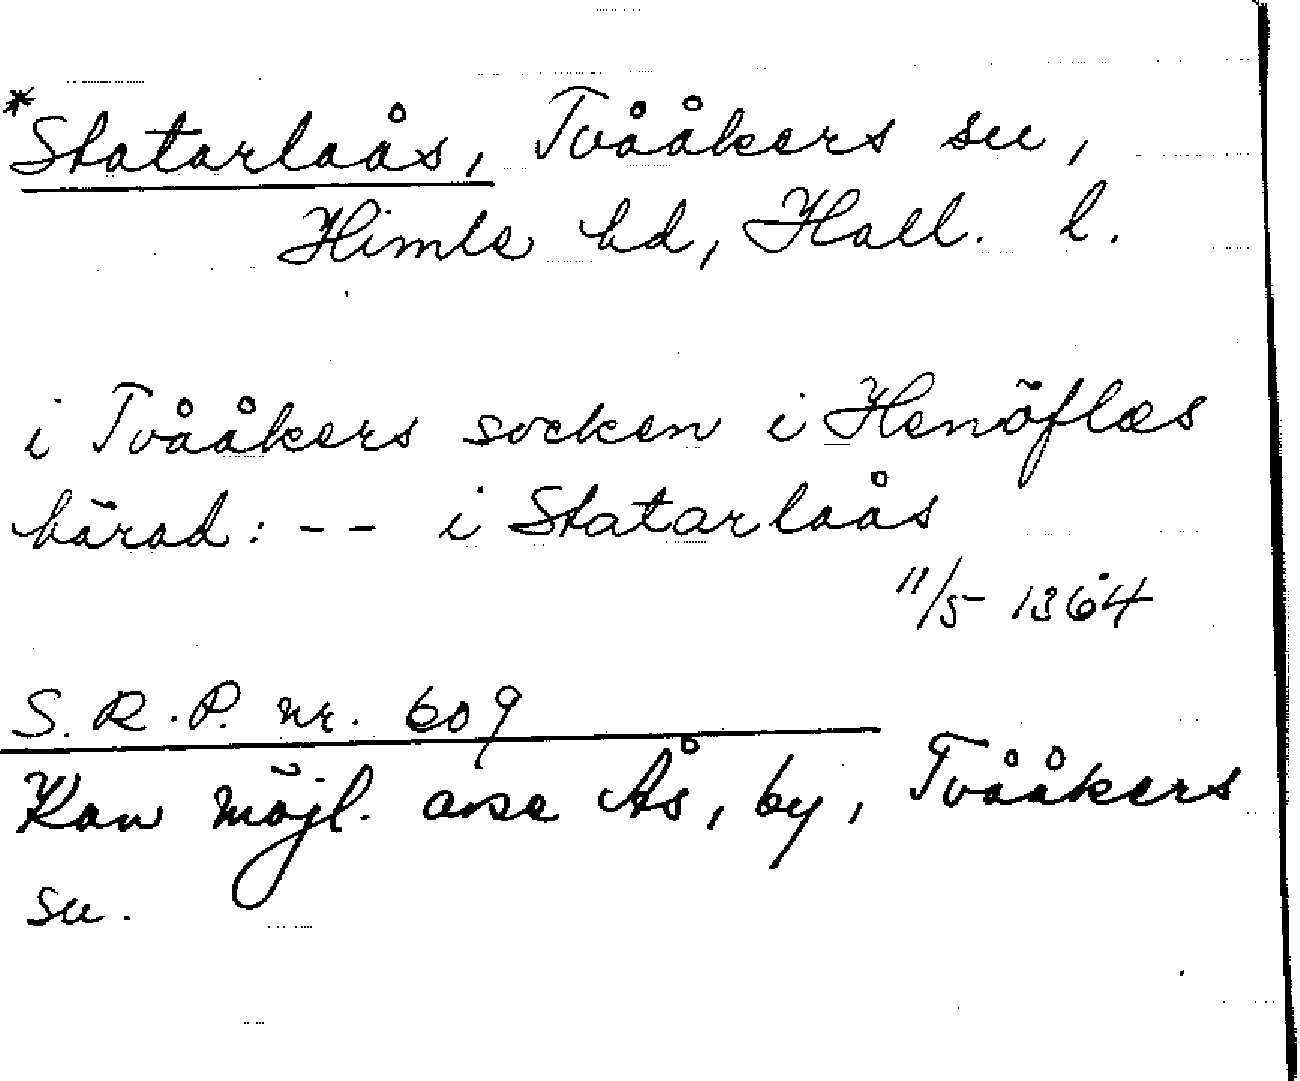 *Statarlaås, Tvååkers sn,
Himle hd, Hall. l.
i Tvååkers socken i Henöflæs
härad: -- i Statarlaås
11/5 1364
S. R. P. nr. 609
Kan möjl. avse Ås, by, Tvååkers
sn.